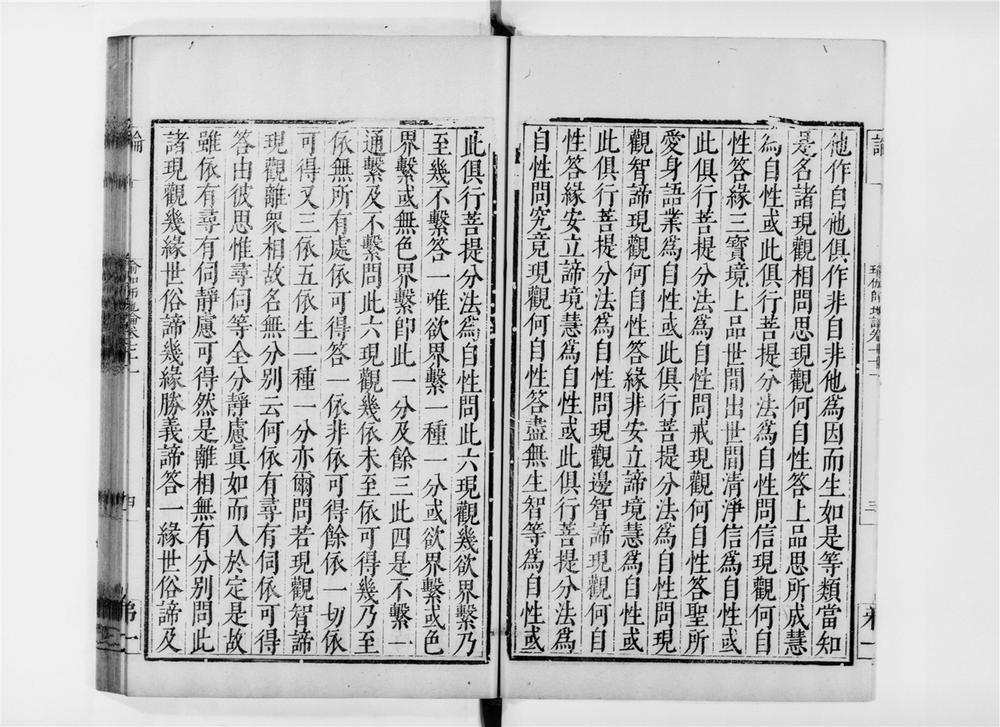 他作自他俱作非自非他為因而生如是等類當知
是名諸現觀相問思現觀何自性答上品思所成慧
為自性或此俱行菩提分法為自性問信現觀何自
性答緣三寶境上品世間出世間清淨信為自性或
此俱行菩提分法為自性問戒現觀何自性答聖所
愛身語業為自性或此俱行菩提分法為自性問現
觀智諦現觀何自性答緣非安立諦境慧為自性或
此俱行菩提分法為自性問現觀邊智諦現觀何自
性答緣安立諦境慧為自性或此俱行菩提分法為
自性問究竟現觀何自性答盡無生智等為自性或
此俱行菩提分法為自性問此六現觀幾欲界繫乃
至幾不繫答一唯欲界繫一種一分或欲界繫或色
界繫或無色界繫即此一分及餘三此四是不繫一
通繫及不繫問此六現觀幾依未至依可得幾乃至
依無所有處依可得答一依非依可得餘依一切依
可得又三依五依生一種一分亦爾問若現觀智諦
現觀離衆相故名無分别云何依有尋有伺依可得
答由彼思惟尋伺等全分靜慮真如而入於定是故
雖依有尋有伺靜慮可得然是離相無有分别問此
諸現觀幾緣世俗諦幾緣勝義諦答一緣世俗諦及